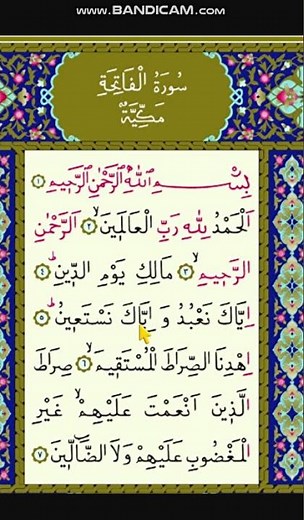 www.BANDICAM.com
سُورَةُ الْفَاتِحَةِ
مَكِّيَّةٌ
بِسْمِ اللّٰهِ الرَّحْمٰنِ الرَّحِيمِ ١
اَلْحَمْدُ لِلّٰهِ رَبِّ الْعَالَمِينَۙ ٢ اَلرَّحْمٰنِ
الرَّحِيمِۙ ٣ مَالِكِ يَوْمِ الدِّينِۜ ٤
اِيَّاكَ نَعْبُدُ وَ اِيَّاكَ نَسْتَعِينُۜ ٥
اِهْدِنَا الصِّرَاطَ الْمُسْتَقِيمَۙ ٦ صِرَاطَ
الَّذِينَ اَنْعَمْتَ عَلَيْهِمْۙ غَيْرِ
الْمَغْضُوبِ عَلَيْهِمْ وَلَا الضَّٓالِّينَ ٧